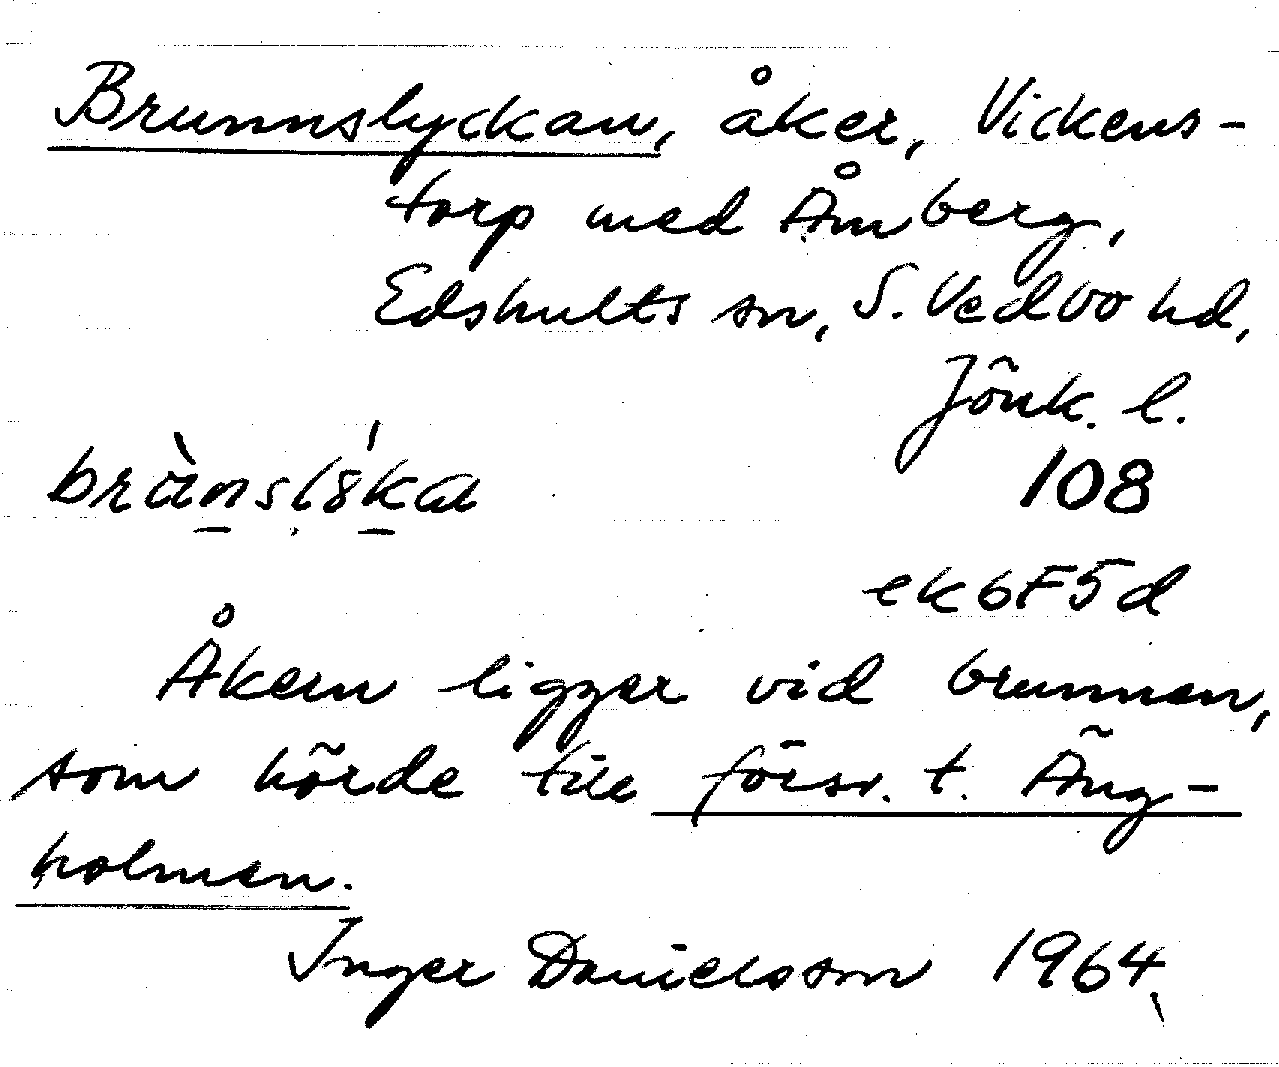 Brunnslyckan, åker, Vickens-
torp med Åmberg,
Edshults sn, S. Vedbo hd,
Jönk. l.
108
ek 6F5d
Åkern ligger vid brunnen,
som hörde till försv. t. Äng-
holmen.
Inger Danielsson 1964.